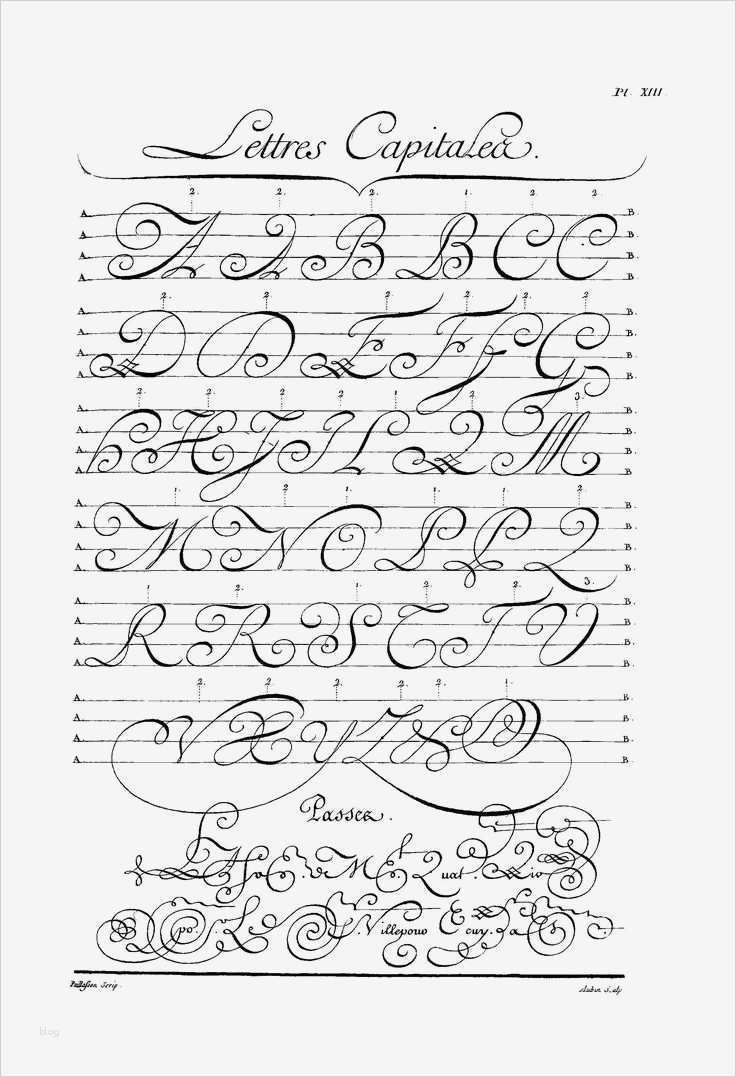 Pl. XIII.
Lettres Capitales.
2. 2. 2. 1. 2. 2.
A. A A B B C C B.
A. B.
A. B.
A. B.
2. 2. 2. 2. 2. 2.
A. D D E F ff G B.
A. B.
A. B.
A. B.
2. 2. 2. 2. 1. 2. 3.
A. h H J I L L M B.
A. B.
A. B.
A. B.
1. 2. 1. 1. 1. 2.
A. M N O P P Q B.
A. B.
A. B.
A. B.
1. 2. 1. 2. 2. 3.
A. R R S T T V B.
A. B.
A. B.
A. B.
2. 2. 2. 2. 2. 1.
A. V X Y Z B.
A. B.
A. B.
A. B.
Passes.
de M. E. Quat.
po. S. Le S. Villepouo Ecuy.
Paillasson Scrip.
Aubin Sculp
blog